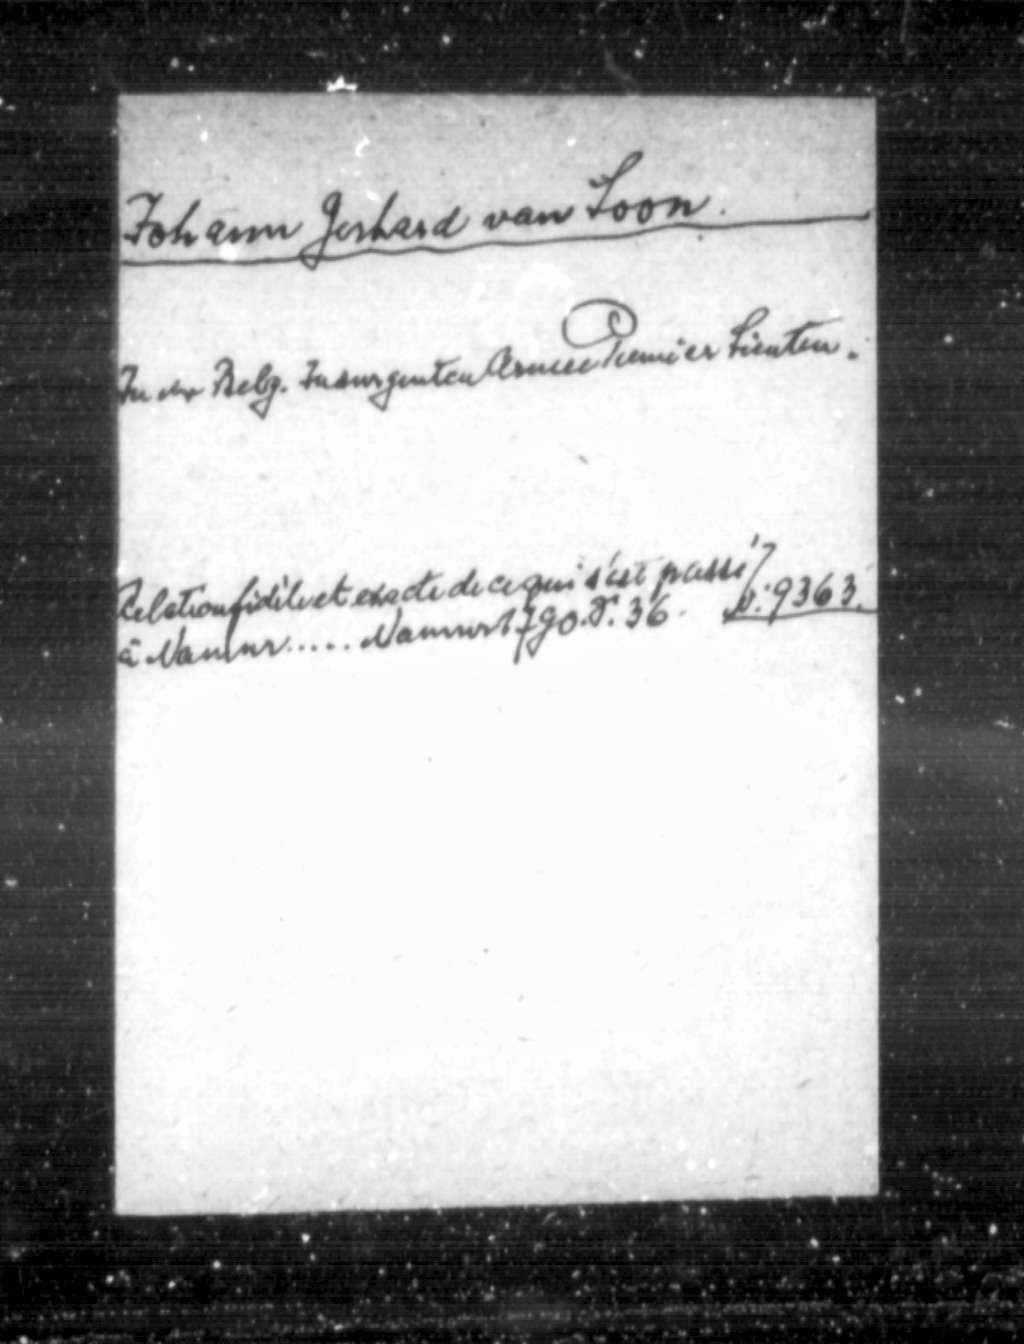 Johann Gerhard van Loon.
In der Belg. Insurgenten Armee Premier Lieuten.
Relation fidèle et exacte de ce qui s'est passé
à Namur..... Namur 1790. P. 36. b: 9363.